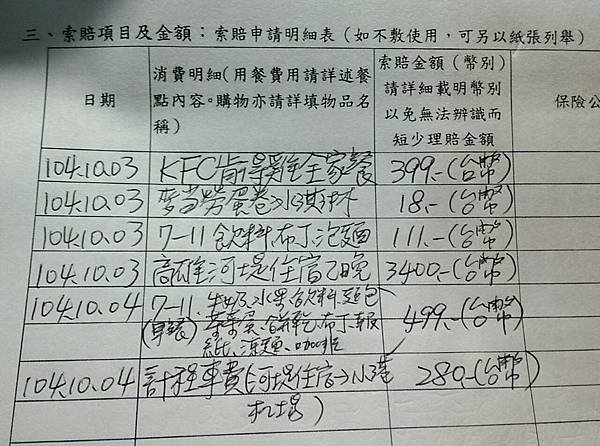 三、索賠項目及金額：索賠申請明細表（如不敷使用，可另以紙張列舉）
日期
消費明細(用餐費用請詳述餐
點內容。購物亦請詳填物品名
稱)
索賠金額（幣別）
請詳細載明幣別
以免無法辨識而
短少理賠金額
保險公
104.10.03 KFC肯得雞全家餐 399.-(台幣)
104.10.03 麥當勞蛋卷冰淇淋 18.-(台幣)
104.10.03 7-11 飲料.布丁.泡麵 111.-(台幣)
104.10.03 高雄河堤住宿2晚 3400.-(台幣)
104.10.04 7-11. 牛奶.水果.飲料.麵包 499.-(台幣)
(早餐) 茶葉蛋、餅乾.布丁.報
紙、涼麵、咖啡
104.10.04 計程車費(河堤住宿→小港 280.-(台幣)
机場)